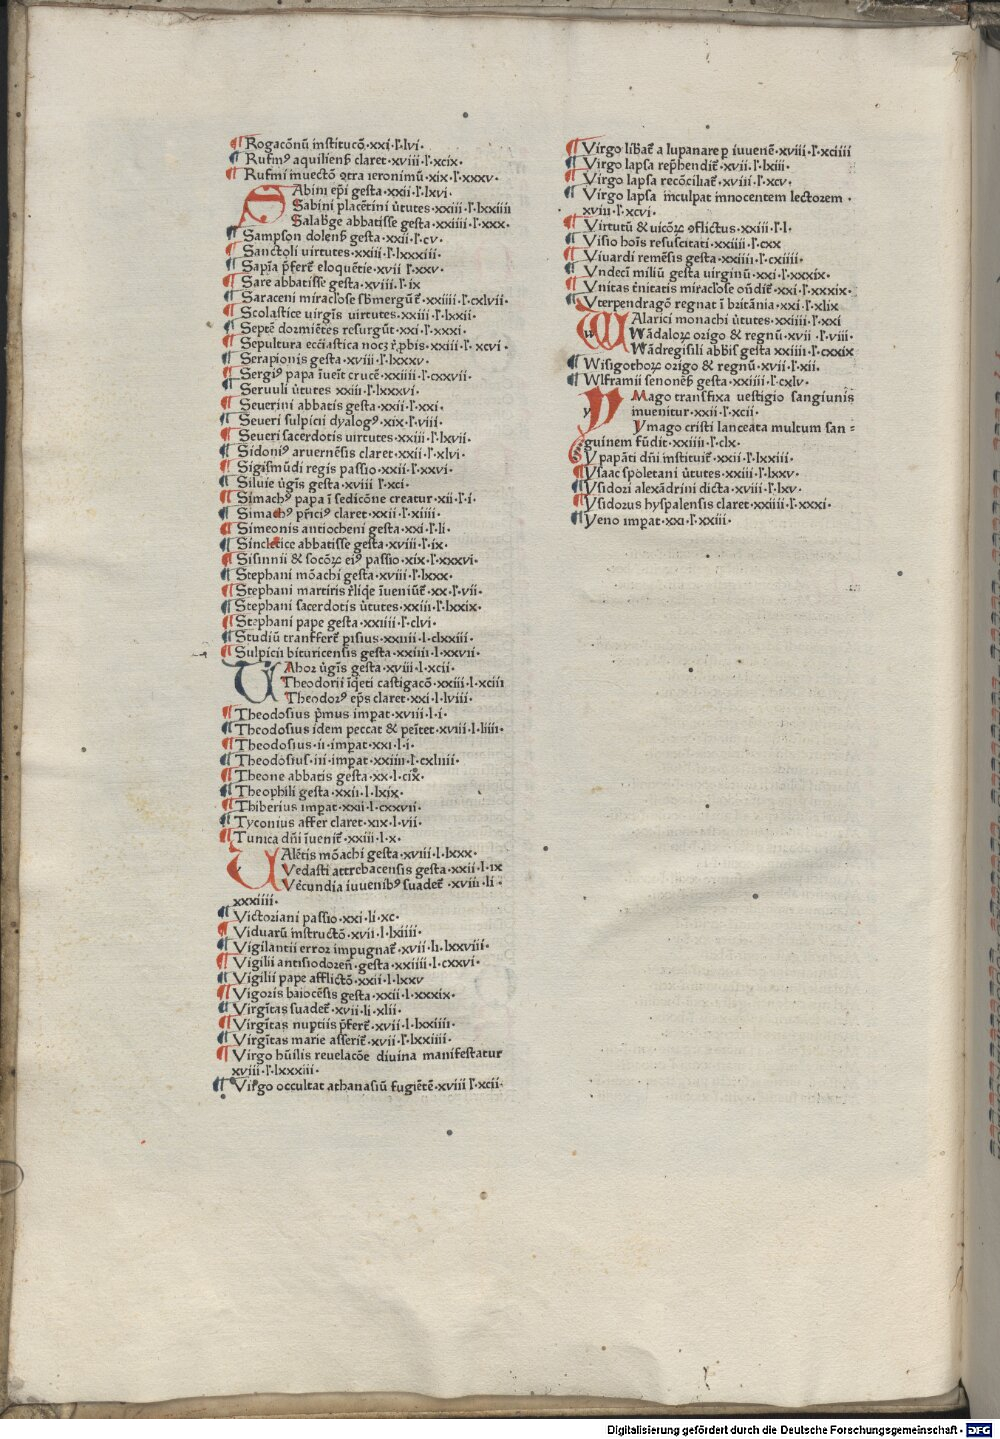 ¶ Rogacõnũ institucõ·xxi·ľ·lvi·
¶ Rufinꝰ aquilienẜ claret·xviii·ľ·xcix·
¶ Rufini inuectõ ꝯtra ieronimũ·xix·ľ·xxxv·
SAbini ep̃i gesta·xxii·ľ·lxvi·
Sabini placẽtini v̓tutes·xxiii·ľ·lxxiiii
Salab̓ge abbatisse gesta·xxiiii·ľ·xxx·
¶ Sampson dolenẜ gesta·xxii·ľ·cv·
¶ Sanctoli uirtutes·xxiii·ľ·lxxxiii·
¶ Sap̃ia p̃fert̃ eloquẽtie·xvii ľ·xxv·
¶ Sare abbatisse gesta·xviii·ľ·ix
¶ Saraceni miracl'ose sb̓mergũt̃·xxiiii·ľ·cxlvii·
¶ Scolastice uirgĩs uirtutes·xxiii·ľ·lxxii·
¶ Septẽ dormiẽtes resurgũt·xxi·ľ·xxxi·
¶ Sepultura ecc̃iastica nocꝫ r̓ꝓbis·xxiii·ľ· xcvi·
¶ Serapionis gesta·xviii·ľ·lxxxv·
¶ Sergiꝰ papa ĩueĩt crucẽ·xxiiii·ľ·cxxvii·
¶ Seruuli v̓tutes xxiii·ľ·lxxxvi·
¶ Seuerini abbatis gesta·xxii·ľ·xxi·
¶ Seueri sulpicii dyalogꝰ·xix·ľ·viii·
¶ Seueri sacerdotis uirtutes·xxiii·ľ·lxvii·
¶ Sidoniꝰ aruernẽsis claret·xxii·ľ·xlvi·
¶ Sigismũdi regis passio·xxii·ľ·xxvi·
¶ Siluie v̓gĩs gesta·xviii ľ·xci·
¶ Simachꝰ papa ĩ sedicõne creatur·xii·ľ·i·
¶ Simachꝰ pr̃iciꝰ claret·xxii·ľ·xiiii·
¶ Simeonis antiocheni gesta·xxi·ľ·li·
¶ Sincletice abbatisse gesta·xviii·ľ·ix·
¶ Sisinnii & socõꝝ eiꝰ passio·xix·ľ·xxxvi·
¶ Stephani mõachi gesta·xviii·ľ·lxxx·
¶ Stephani martiris r̓liq̃e ĩueniũt̃·xx·ľ·vii·
¶ Stephani sacerdotis v̓tutes·xxiii·ľ·lxxix·
¶ Stephani pape gesta·xxiiii·ľ·clvi·
¶ Studiũ transfert̃ p̱isius·xxiiii·l·clxxiii·
¶ Sulpicii bituricensis gesta·xxiiii·l·xxvii·
TAhor v̓gĩs gesta·xviii·l·xcii·
Theodorii ĩq̃eti castigacõ·xxiii·l·xciii
Theodorꝰ ep̃s claret·xxi·l·lviii·
¶ Theodosius p̃mus imp̱at·xviii·l·i·
¶ Theodosius idem peccat & peĩtet·xviii·l·liiii·
¶ Theodosius·ii·imp̱at·xxi·l·i·
¶ Theodosius·iii·imp̱at·xxiiii·l·cxliiii·
¶ Theone abbatis gesta·xx·l·cix·
¶ Theophili gesta·xxii·l·lxix·
¶ Thiberius imp̱at·xxii·l·cxxvii·
¶ Tyconius affer claret·xix·l·vii·
¶ Tunica dñi ĩuenit̃·xxiii·l·x·
VAlẽtis mõachi gesta·xviii·l·lxxx·
Vedasti attrebacensis gesta·xxii·l·ix
Vẽcundia iuuenibꝰ suadet̃·xviii·li·
xxxiiii·
¶ Victoriani passio·xxi·li·xc·
¶ Viduarũ instructõ·xvii·l·lxiiii·
¶ Vigilantii error impugnat̃·xvii·li·lxxviii·
¶ Vigilii antisiodoreñ·gesta·xxiiii·l·cxxvi·
¶ Vigilii pape afflictõ·xxii·l·lxxv
¶ Vigoris baiocẽsis gesta·xxii·l·xxxix·
¶ Virgĩtas suadet̃·xvii·li·xlii·
¶ Virgĩtas nuptiis p̃fert̃·xvii·l·lxxiiii·
¶ Virgĩtas marie asserit̃·xvii·ľ·lxxiiii·
¶ Virgo hũilis reuelacõe diuina manifestatur
xviii·ľ·lxxxiii·
¶ Virgo occultat athanasiũ fugiẽtẽ·xviii ľ·xcii·
¶ Virgo lib̓at̃ a lupanare ꝑ iuuenẽ·xviii·ľ·xciiii
¶ Virgo lapsa rep̓hendit̃·xvii·ľ·lxiii·
¶ Virgo lapsa recõciliat̃·xviii·ľ·xcv·
¶ Virgo lapsa inculpat innocentem lectorem·
xviii·ľ·xcvi·
¶ Virtutũ & uicõꝝ ꝯflictus·xxiii·ľ·l·
¶ Visio hoĩs resuscitati·xxiiii·ľ·cxx
¶ Viuardi remẽsis gesta·xxiiii·ľ·cxiiii·
¶ Vndecĩ miliũ gesta uirginũ·xxi·ľ·xxxix·
¶ Vnitas t̓nitatis miracl'ose oñdit̃·xxi·ľ·xxxix·
¶ Vterpendragõ regnat ĩ britãnia·xxi·ľ·xlix
WAlarici monachi v̓tutes·xxiiii·ľ·xxi
Wãdaloꝝ origo & regnũ·xvii·ľ·viii·
Wãdregisili abb̃is gesta xxiiii·ľ·cxxix
¶ Wisigothoꝝ origo & regnũ·xvii·ľ·xii·
¶ Wlframii senonẽẜ gesta·xxiiii·ľ·cxlv·
YMago transfixa uestigio sanguinis
inuenitur·xxii·ľ·xcii·
Ymago cristi lanceata multum san=
guinem fũdit·xxiiii·ľ·clx·
¶ Ypapãti dñi instituit̃·xxii·ľ·lxxiii·
¶ Ysaac spoletani v̓tutes·xxiii·ľ·lxxv·
¶ Ysidori alexãdrini dicta·xviii·ľ·lxv·
¶ Ysidorus hyspalensis claret·xxiiii·ľ·xxxi·
¶ Yeno imp̱at·xxi·ľ·xxiii·
Digitalisierung gefördert durch die Deutsche Forschungsgemeinschaft · DFG